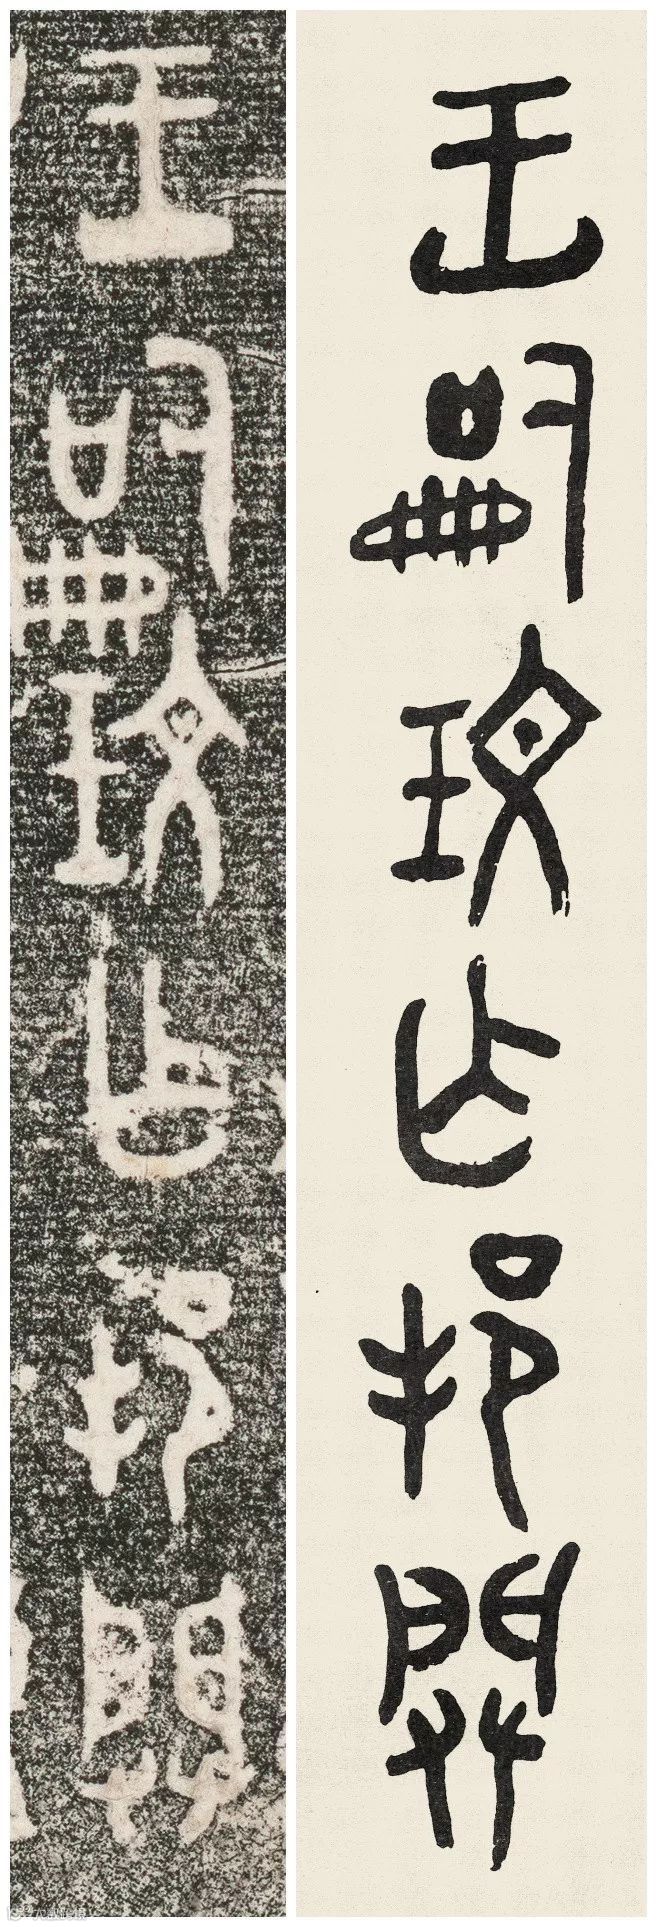 王嗣玟乍邦闢
王嗣玟乍邦闢